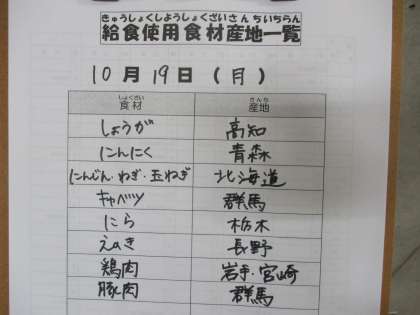 きゅうしょくしようしょくざいさんちいちらん
給食使用食材産地一覧
10月19日(月)
しょくざい さんち
食材 産地
しょうが 高知
にんにく 青森
にんじん・ねぎ・玉ねぎ 北海道
キャベツ 群馬
にら 栃木
えのき 長野
鶏肉 岩手・宮崎
豚肉 群馬